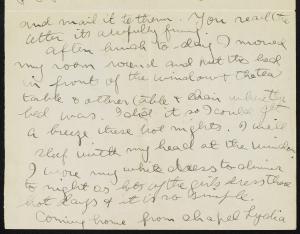 and mail it to them. You read the
letter its awfully funny.
After lunch to-day I moved
my room round and put the bed
in front of the window & the tea
table & other table & chair where the
bed was. I did it so I could get
a breeze these hot nights. I will
sleep with my head at the window
I wore my white dress to dinner
to night as lots of the girls dress these
hot days & it is so simple.
Coming home from chapel Lydia